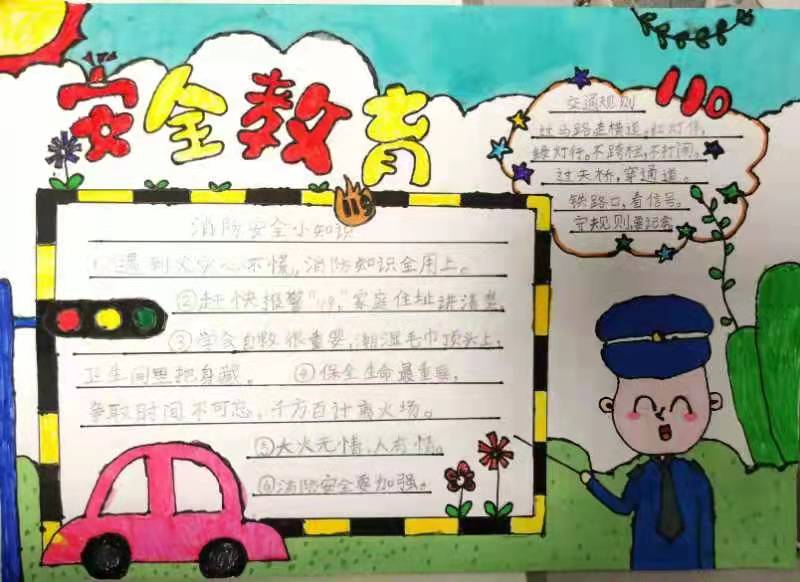 安全教育
119
消防安全小知识
①遇到火灾心不慌，消防知识全用上。
②赶快报警“119，”家庭住址讲清楚。
③学会自救很重要，潮湿毛巾顶头上，
卫生间里把身藏。 ④保全生命最重要，
争取时间不可忘，千方百计离火场。
⑤大火无情，人有情。
⑥消防安全要加强。
110
交通规则
过马路走横道，红灯停，
绿灯行。不跨栏，不打闹。
过天桥，穿通道。
铁路口，看信号。
守规则，要记牢